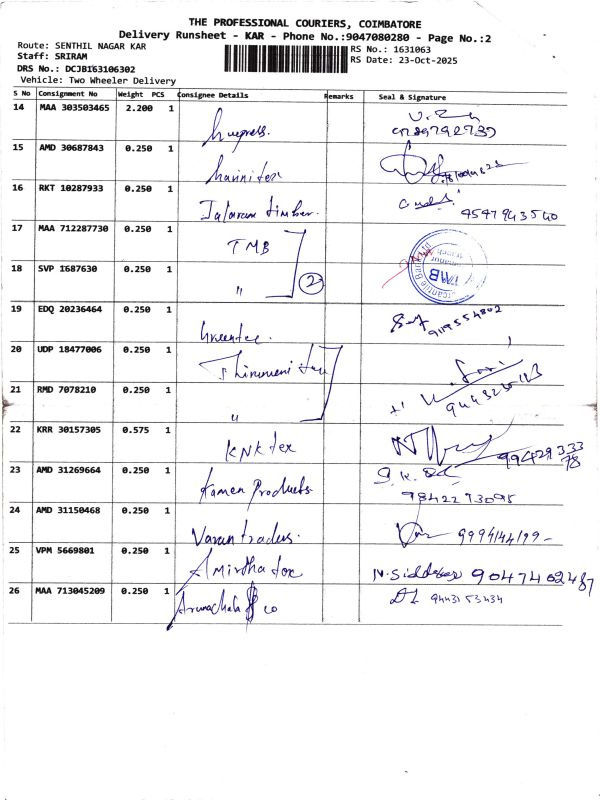 THE PROFESSIONAL COURIERS, COIMBATORE
Delivery Runsheet - KAR - Phone No.:9047080280 - Page No.:2
Route: SENTHIL NAGAR KAR
Staff: SRIRAM
DRS No.: DCJB163106302
Vehicle: Two Wheeler Delivery
RS No.: 1631063
RS Date: 23-Oct-2025
S No Consignment No Weight PCS Consignee Details Remarks Seal & Signature
14 MAA 303503465 2.200 1
15 AMD 30687843 0.250 1
16 RKT 10287933 0.250 1 Jalaram timber.
17 MAA 712287730 0.250 1 TMB
18 SVP 1687630 0.250 1 " 2
19 EDQ 20236464 0.250 1 Greentec. 9119554802
20 UDP 18477006 0.250 1
21 RMD 7078210 0.250 1 "
22 KRR 30157305 0.575 1 KNK tex 99429333
78
23 AMD 31269664 0.250 1 Kamen Products.
9842293095
24 AMD 31150468 0.250 1 Varun traders.
25 VPM 5669801 0.250 1 Amirtha tex 9047402487
26 MAA 713045209 0.250 1 Arunachala & co 9443153434